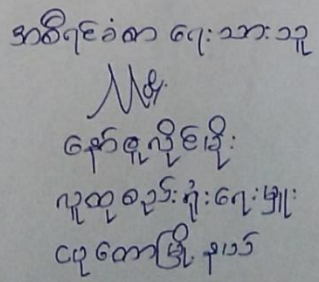 အစီရင်ခံစာ ရေးသားသူ
နော်စူးလှိုင်ဖြိုး
လူထုစည်းရုံးရေးမှူး
ငပုတောမြို့နယ်